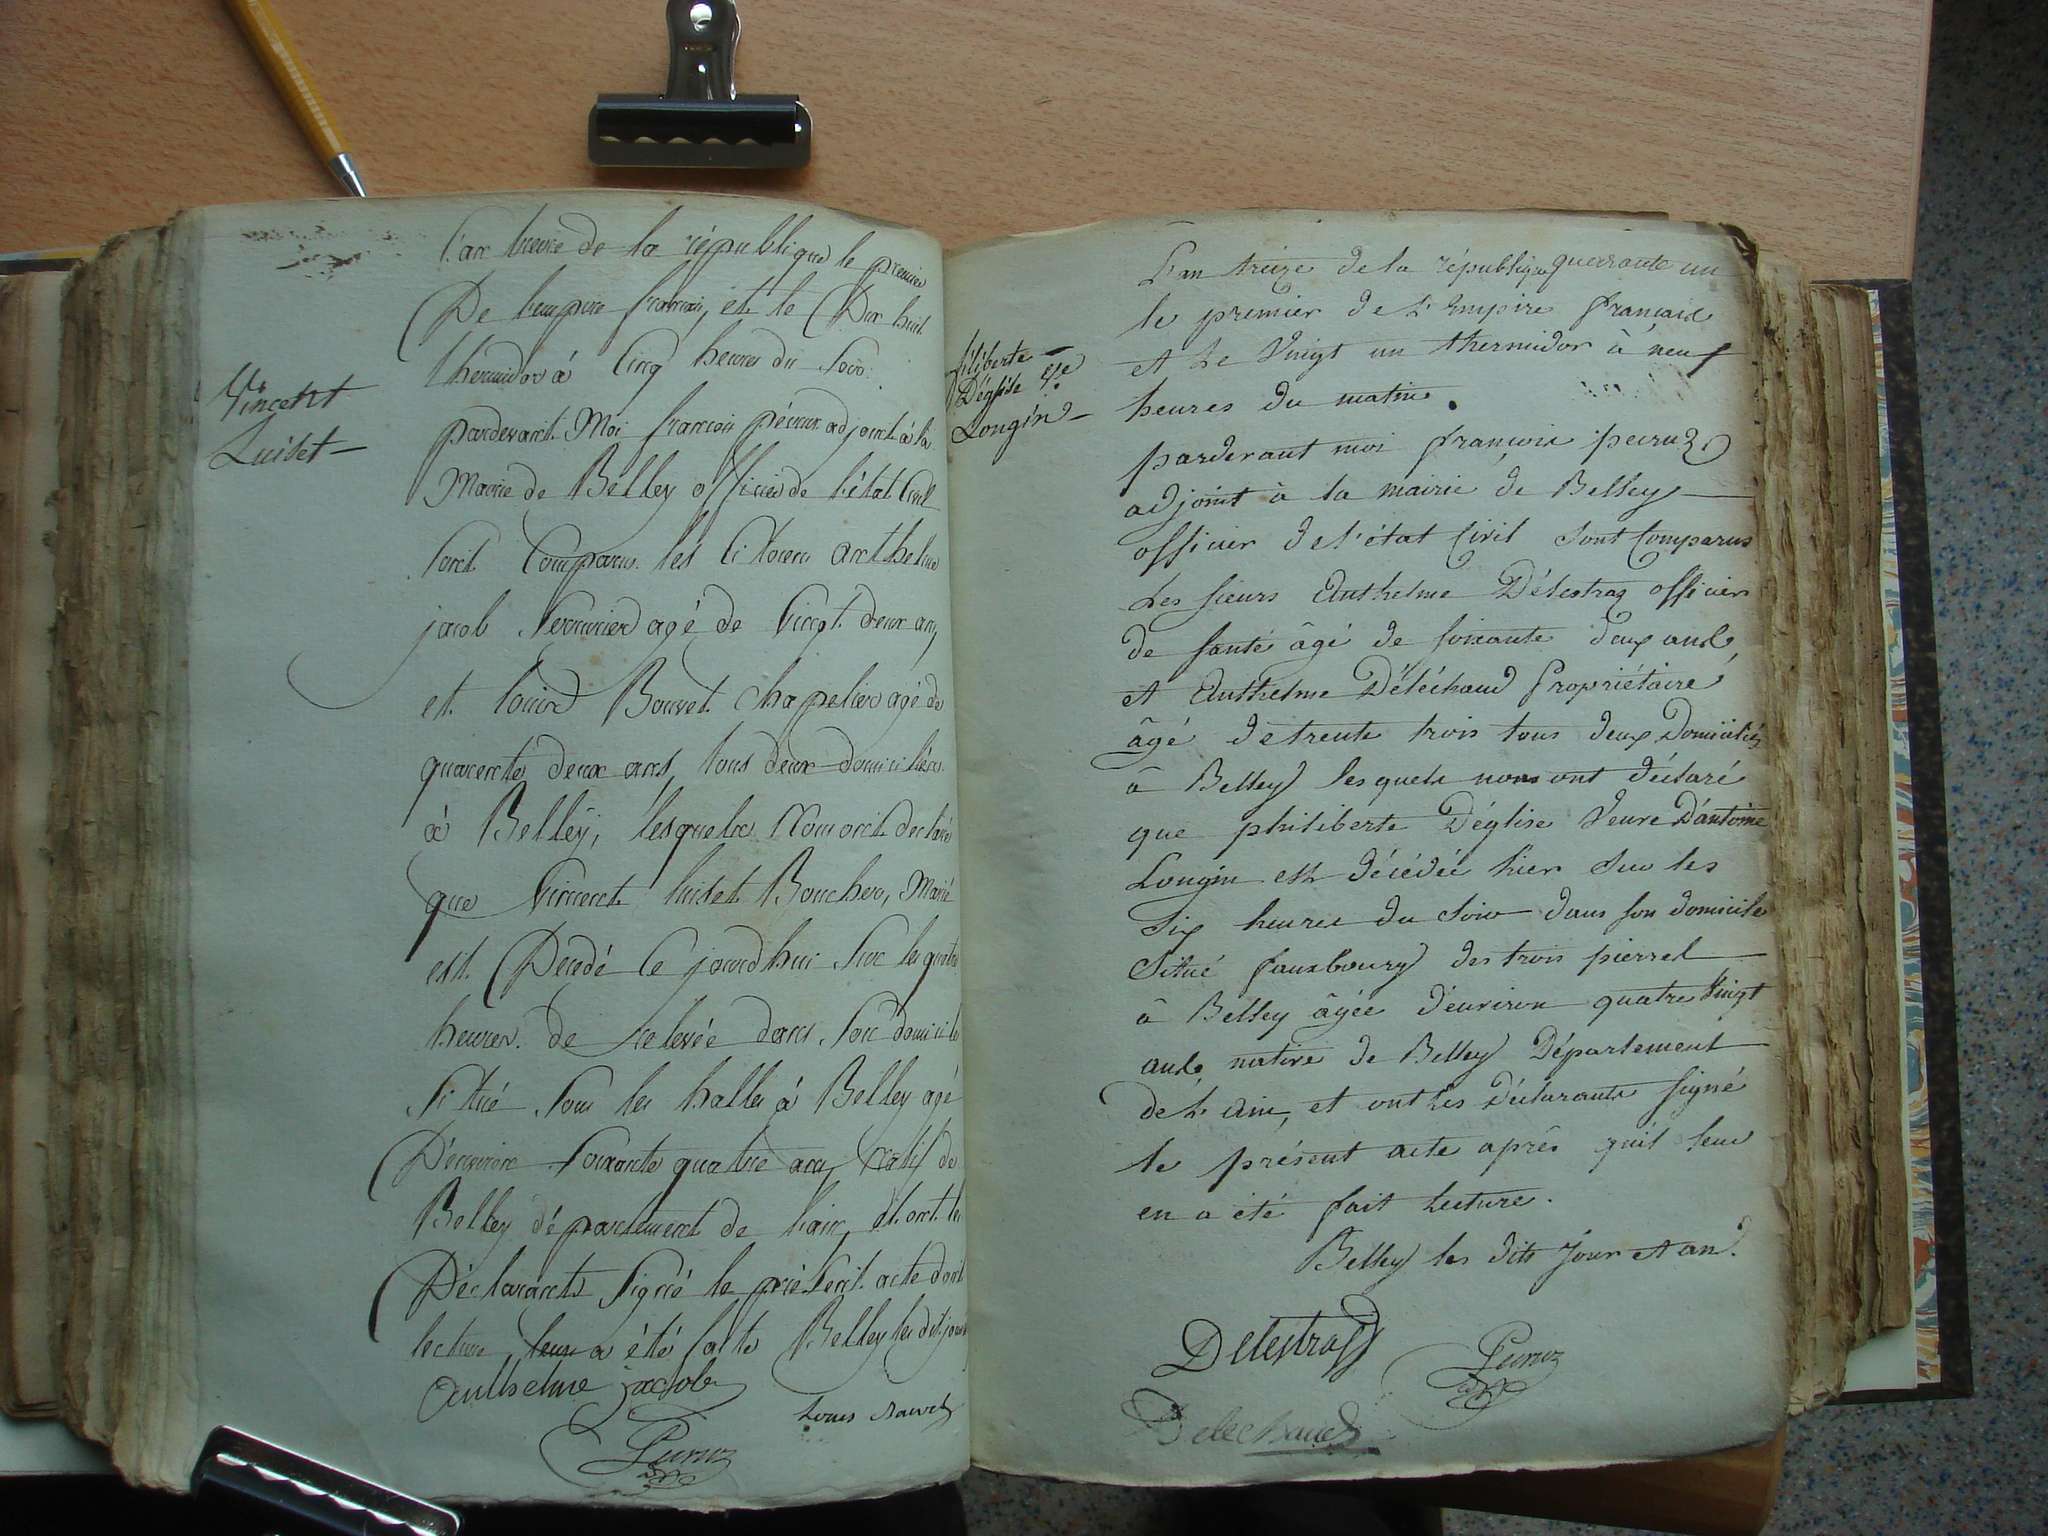 Vincent
Luiset
L'an treize de la république le premier
De l'empire francais, et le Dix huit
thermidor à Cinq heures du Soir.
pardevant Moi francois péçruz adjoint à la
Mairie de Belley officier de l'état Civil
Sont Comparus les Citoiens anthelme
jacob Serrurier agé de Vingt deux ans,
et louis Bouvet Chapelier agé de
quarente deux ans, tous deux domiciliés
à Belley, lesquels Nous ont declaré
que Vincent luiset Boucher, Marié
est Décedé Ce jourd'hui Sur les quatre
heures de relevée dans Son domicile
Situé Sous les halles à Belley agé
D'environ Soixante quatre ans, Natif de
Belley département de l'ain, et ont les
Déclarants Signé le présent acte dont
lecture leur a été faite Belley les dit jour
anthelme jacob
Louis Bouvet
philiberte
Déglise Ve
Longin
L'an treize de la république
le premier de L'Empire français
et Le Vingt un thermidor à neuf
heures du matin.
pardevant moi françois
adjoint à la mairie de Belley
officier de l'état Civil Sont Comparus
Les sieurs Anthelme Délestraz officier
de santé âgé de soixante deux ans,
et Anthelme Déléchaud Propriétaire
âgé de trente trois tous deux Domiciliés
à Belley lesquels nous ont déclaré
que philiberte Déglise Veuve D'antoine
Longin est décédée hier sur les
Six heures du Soir dans son domicile
Situé fauxbourg des trois pierres
à Belley âgée d'environ quatre Vingt
ans native de Belley Département
de L'Ain, et ont les Déclarants signé
le présent acte après qu'il leur
en a été fait Lecture.
Belley les dits Jour et an.
Delestraz
Delechaud